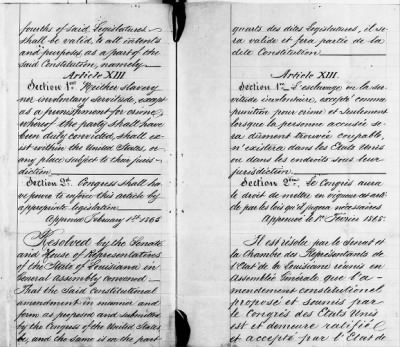 fourths of said Legislatures
shall be valid, to all intents
and purposes as a part of the
said Constitution, namely
Article XIII.
Section 1st Neither slavery
nor involuntary servitude, except
as a punishment for crime,
whereof the party shall have
been duly convicted, shall ex
ist within the United States, or
any place subject to their juris-
diction.
Section 2d. Congress shall ha
ve power to enforce this article by
appropriate legislation
Approved February 1st 1865
Resolved by the Senate
and House of Representatives
of the State of Louisiana in
General Assembly convened
That the said Constitutional
amendment in manner and
form as proposed and submitted
by the Congress of the United States
be, and the same is on the part
quarts des dites Législatures, il se
ra valide et fera partie de la
dite Constitution
Article XIII.
Section 1re L'esclavage ou la ser
vitude involontaire, excepté comme
punition pour crime et seulement
lorsque la personne accusée se
ra dûment trouvée coupable,
n'existera dans les Etats Unis
ou dans les endroits sous leur
jurisdiction.
Section 2me Le Congrès aura
le droit de mettre en vigueur cet arti
cle par les lois qu'il jugera nécessaires
Approuvé le 1er Février 1865.
Il est résolu par le Sénat et
la Chambre des Représentants de
l'Etat de la Louisiane réunis en
Assemblée Générale Que l'a-
mendement constitutionnel
proposé et soumis par
le Congrès des Etats Unis
est et demeure ratifié
et accepté par l'Etat de